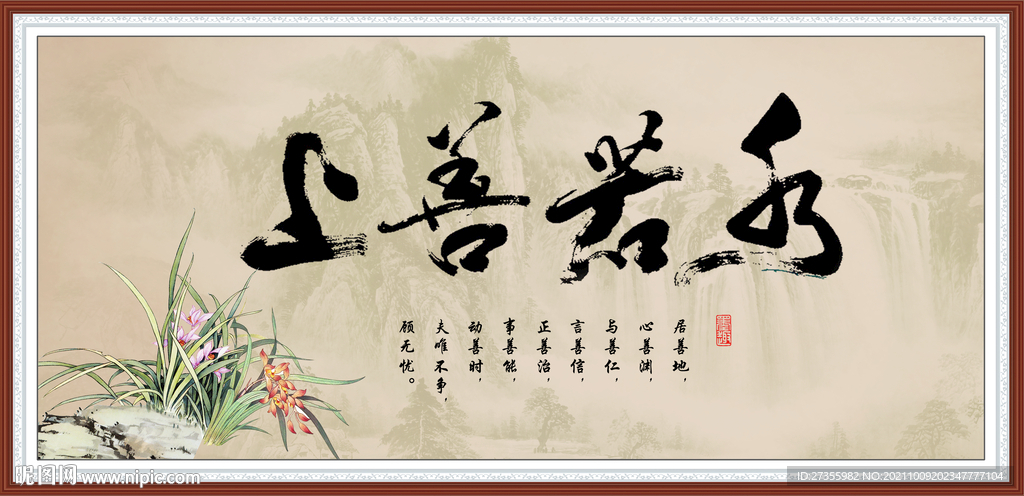 上善若水
居善地，
心善渊，
与善仁，
言善信，
正善治，
事善能，
动善时，
夫唯不争，
顾无忧。
昵图网 www.nipic.com
ID:27355982 NO:20211009202347777104